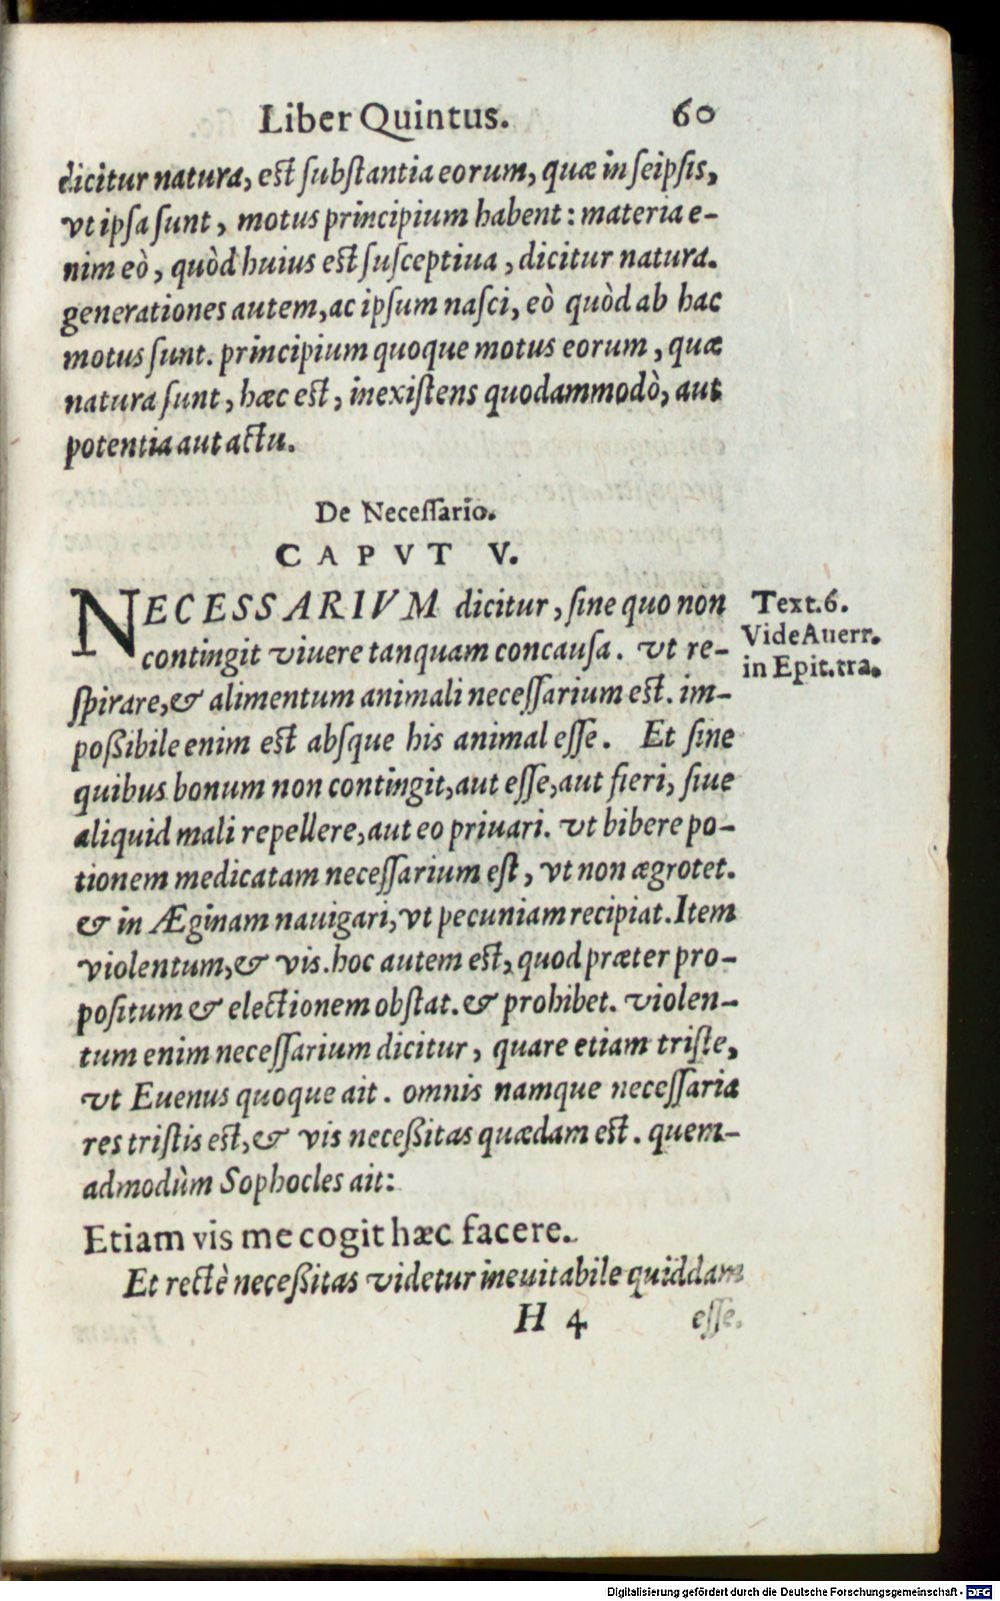 Liber Quintus. 60
dicitur natura, est ſubſtantia eorum, quæ in ſeipſis,
vt ipſa ſunt, motus principium habent: materia e-
nim eò, quòd huius est ſuſceptiua, dicitur natura.
generationes autem, ac ipſum naſci, eò quòd ab hac
motus ſunt. principium quoque motus eorum, quæ
natura ſunt, hæc est, inexiſtens quodammodò, aut
potentia aut actu.
De Neceſſario.
CAPVT V.
NECESSARIVM dicitur, ſine quo non
contingit viuere tanquam concauſa. vt re-
ſpirare, & alimentum animali neceſſarium est. im-
poßibile enim est abſque his animal eſſe. Et ſine
quibus bonum non contingit, aut eſſe, aut fieri, ſiue
aliquid mali repellere, aut eo priuari. vt bibere po-
tionem medicatam neceſſarium eſt, vt non ægrotet.
& in Æginam nauigari, vt pecuniam recipiat. Item
violentum, & vis. hoc autem est, quod præter pro-
poſitum & electionem obſtat. & prohibet. violen-
tum enim neceſſarium dicitur, quare etiam triſte,
vt Euenus quoque ait. omnis namque neceſſaria
res triſtis est, & vis neceßitas quædam est. quem-
admodùm Sophocles ait:
Etiam vis me cogit hæc facere.
Et rectè neceßitas videtur ineuitabile quiddam
H 4 eſſe.
Text. 6.
Vide Auerr.
in Epit. tra.
Digitalisierung gefördert durch die Deutsche Forschungsgemeinschaft - DFG